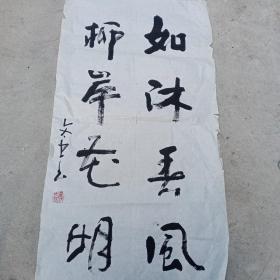 如沐春風
柳岸花明